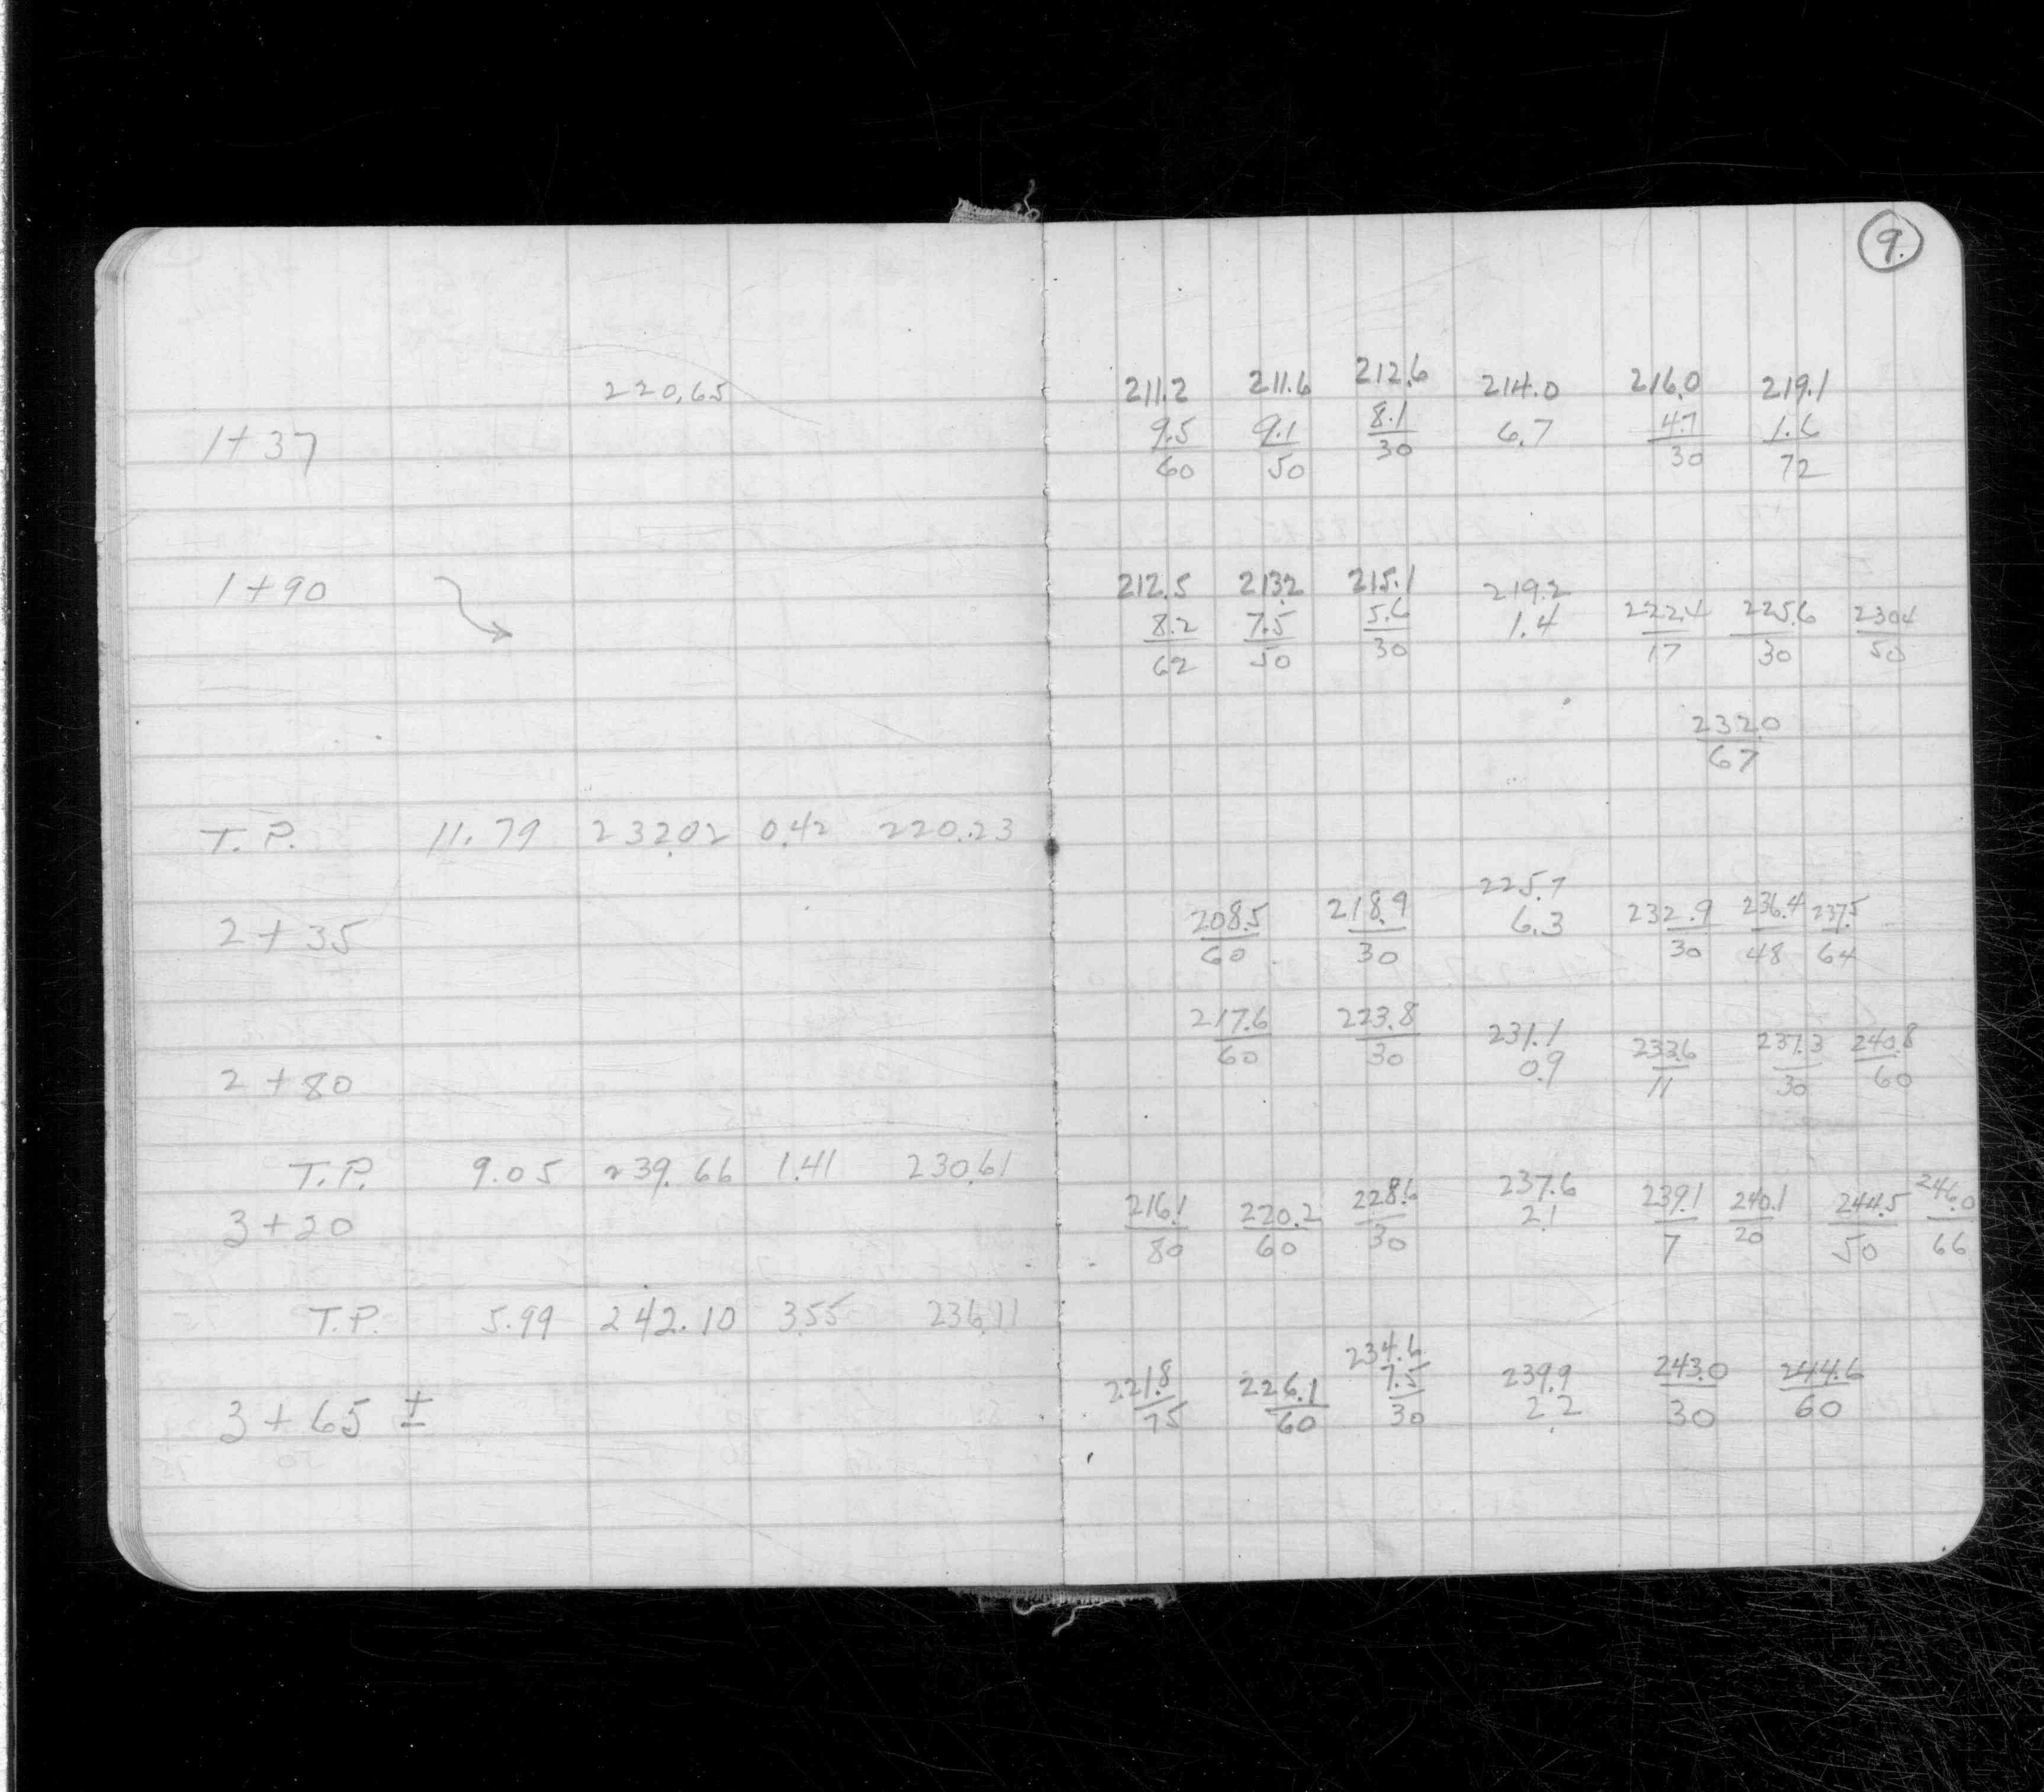 9.
220.65
211.2 211.6 212.6 214.0 216.0 219.1
1+37 9.5 9.1 8.1 6.7 4.7 1.6
60 50 30 30 72
1+90 212.5 213.2 215.1 219.2
8.2 7.5 5.6 1.4 222.4 225.6 230.4
62 50 30 17 30 50
232.0
67
T.P. 11.79 232.02 0.42 220.23
225.7
2+35 208.5 218.9 6.3 232.9 236.4 237.5
60 30 30 48 64
217.6 223.8 231.1
60 30 0.9 233.6 237.3 240.8
2+80 11 30 60
T.P. 9.05 239.66 1.41 230.61
3+20 216.1 220.2 228.6 237.6 239.1 240.1 244.5 246.0
80 60 30 2.1 7 20 50 66
T.P. 5.99 242.10 3.55 236.11
234.6
221.8 226.1 7.5 239.9 243.0 244.6
3+65 ± 75 60 30 2.2 30 60